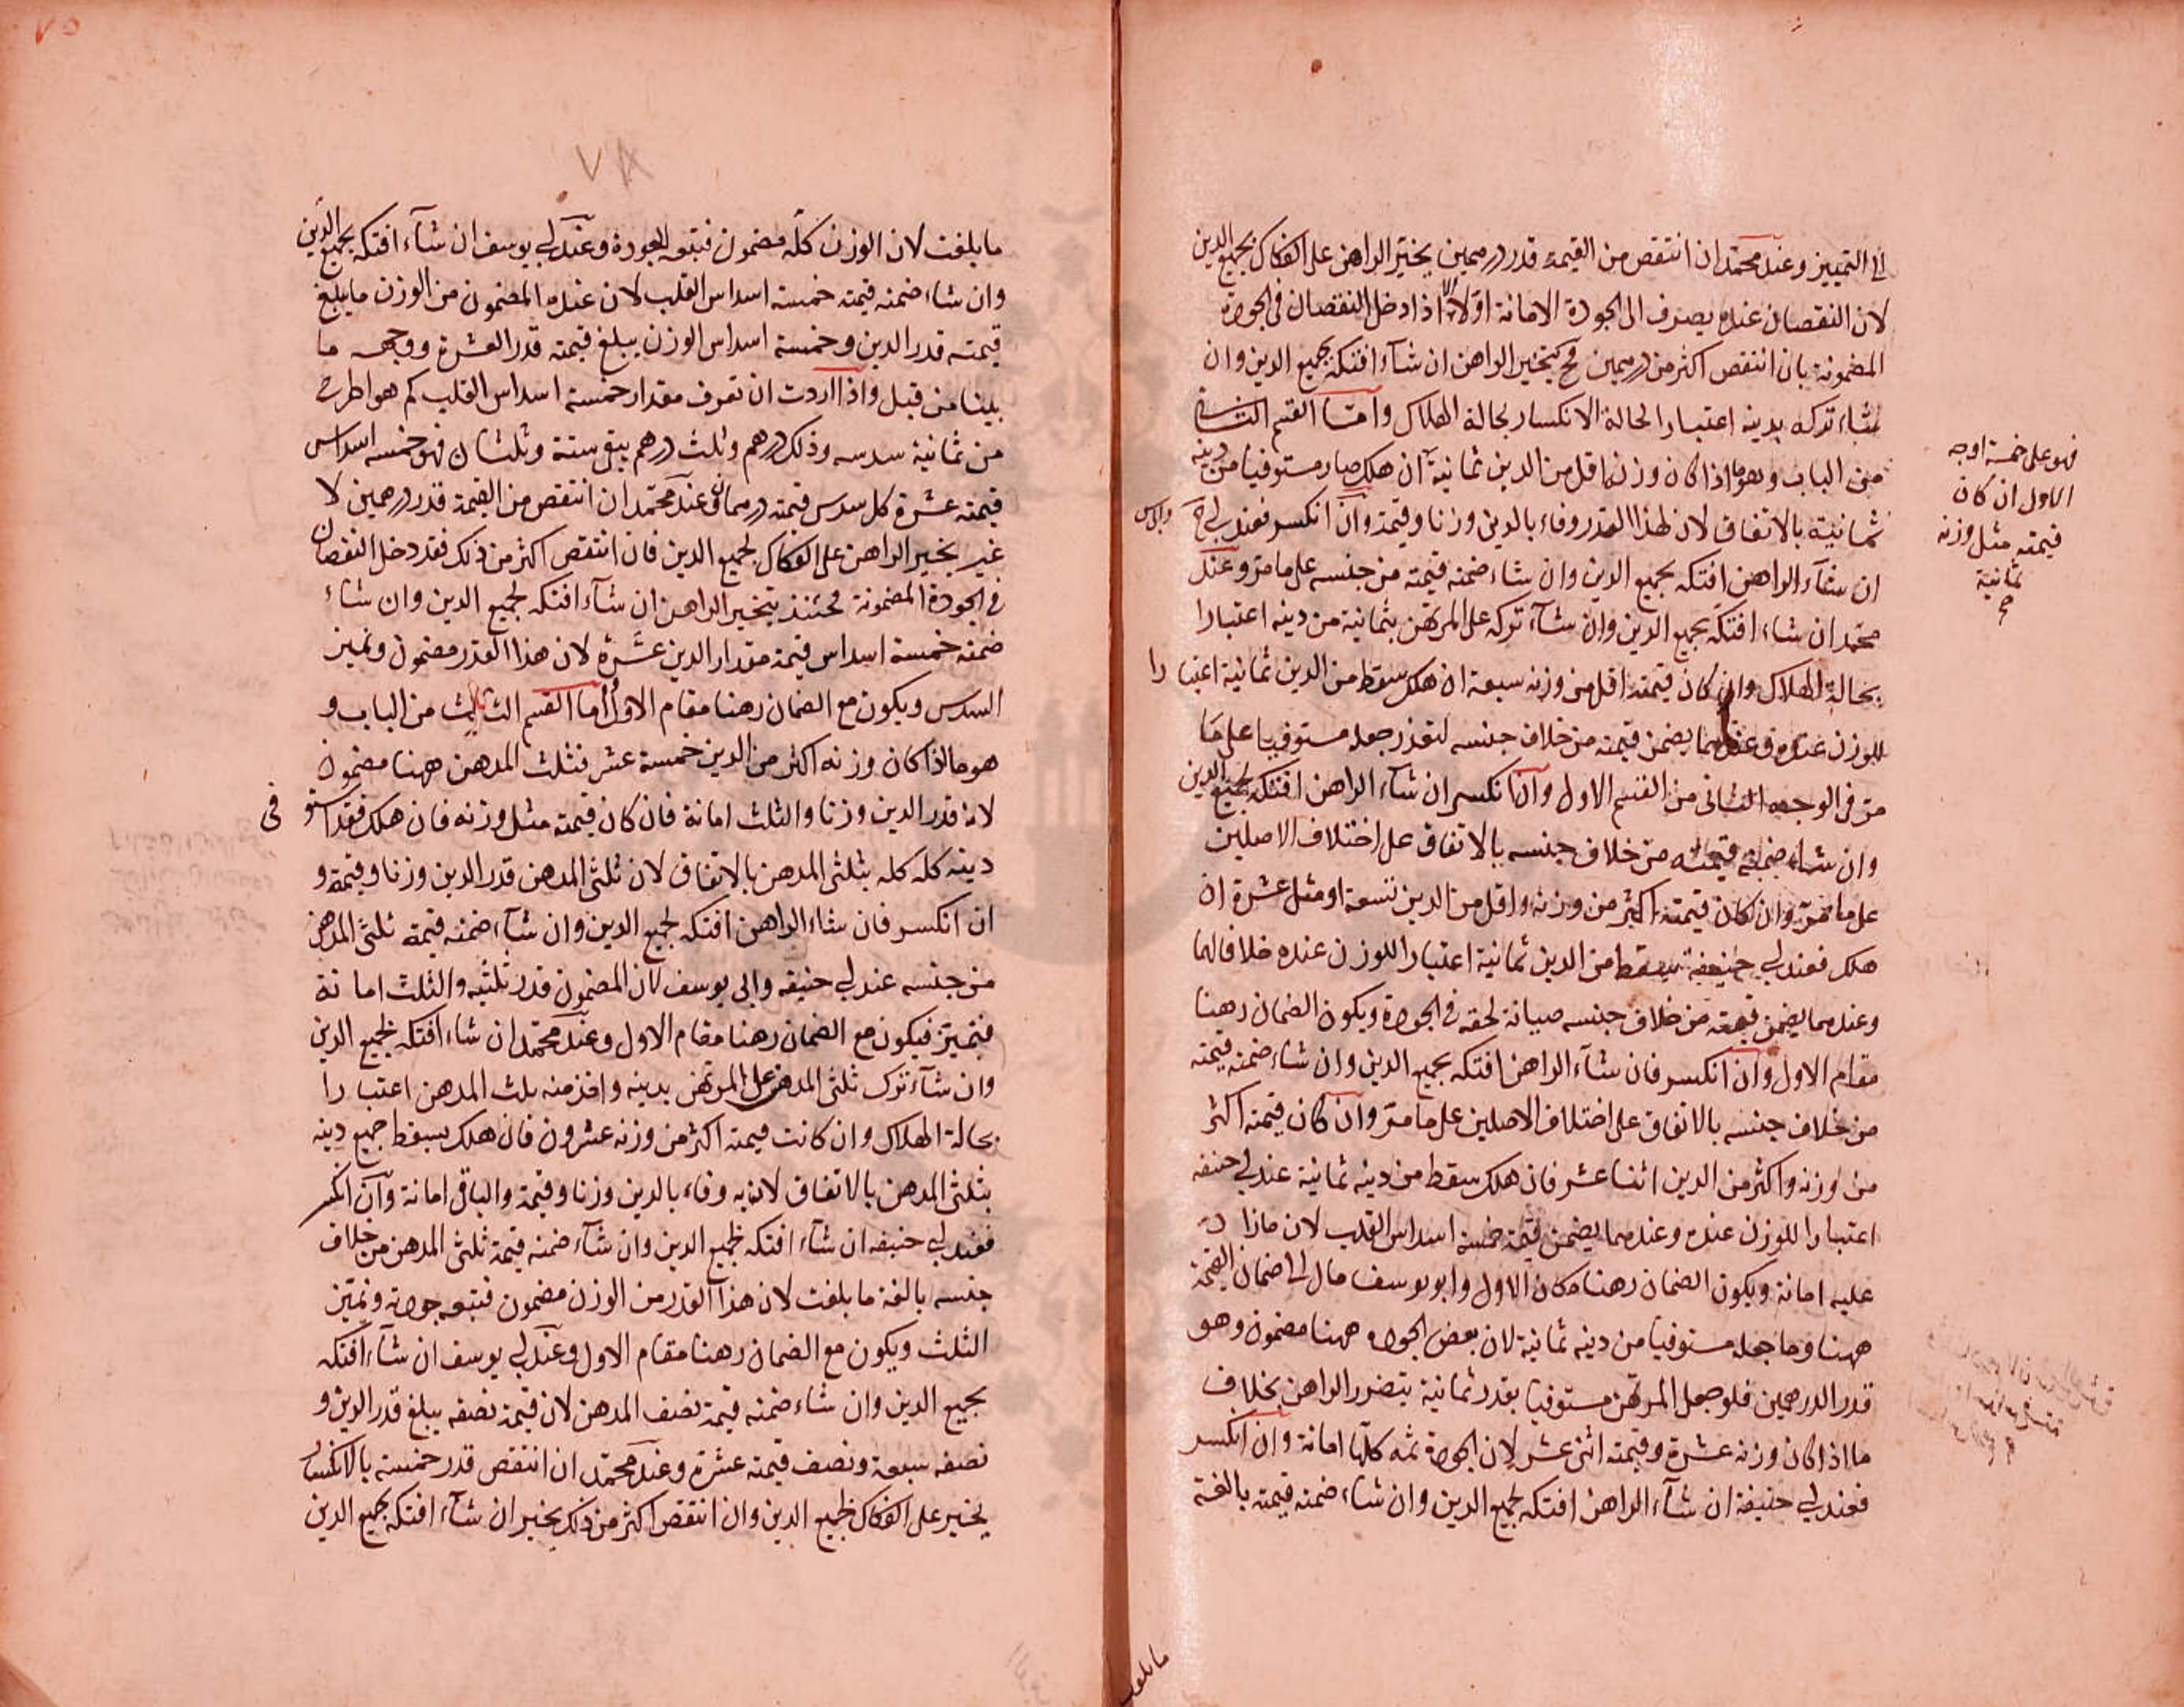 الى التمييز وعند محمد ان انتقص من القيمة قدر درهمين يخير الراهن على الفكاك بجميع الدين
لان النقصان عنده يصرف الى الجودة الامانة اولا الا اذا دخل النقصان في الجودة
المضمونة بان انتقص اكثر من درهمين فح يتخير الراهن ان شآء افتكه بجميع الدين وان
شاء تركه بدينه اعتبارا لحالة الانكسار بحالة الهلاك واما القسم الثاني
من الباب وهو ما اذا كان وزنه اقل من الدين ثمانية ان هلك صار مستوفيا من دينه
ثمانية بالاتفاق لان لهذا القدر وفاء بالدين وزنا وقيمة وان انكسر فعند ابي ح وابي س
ان شآء الراهن افتكه بجميع الدين وان شاء ضمنه قيمته من جنسه على ما مر وعند
محمد ان شاء افتكه بجميع الدين وان شآء تركه على المرتهن بثمانية من دينه اعتبارا
بحالة الهلاك وان كان قيمته اقل من وزنه سبعة ان هلك سقط من الدين ثمانية اعتبارا
للوزن عنده وعندهما يضمن قيمته من خلاف جنسه لتعذر جعله مستوفيا على ما
مر في الوجه الثاني من القسم الاول وان انكسر ان شآء الراهن افتكه بجميع الدين
وان شاء ضمنه قيمته من خلاف جنسه بالاتفاق على اختلاف الاصلين
على ما مر وان كان قيمته اكثر من وزنه واقل من الدين تسعة او مثل عشرة ان
هلك فعند ابي حنيفة يسقط من الدين ثمانية اعتبارا للوزن عنده خلافا لهما
وعندهما يضمن قيمته من خلاف جنسه صيانة لحقه في الجودة ويكون الضمان رهنا
مقام الاول وان انكسر فان شآء الراهن افتكه بجميع الدين وان شاء ضمنه قيمته
من خلاف جنسه بالاتفاق على اختلاف الاصلين على ما مر وان كان قيمته اكثر
من وزنه واكثر من الدين اثنا عشر فان هلك سقط من دينه ثمانية عند ابي حنيفه
اعتبارا للوزن عنده وعندهما يضمن قيمة خمسة اسداس القلب لان ما زاد
عليه امانة ويكون الضمان رهنا مكان الاول وابو يوسف مال الى ضمان القيمة
ههنا وما جعله مستوفيا من دينه ثمانية لان بعض الجودة ههنا مضمون وهو
قدر الدرهمين فلو جعل المرتهن مستوفيا بقدر ثمانية يتضرر الراهن بخلاف
ما اذا كان وزنه عشرة وقيمته اثنى عشر لان الجودة ثمه كلها امانة وان انكسر
فعند ابي حنيفة ان شآء الراهن افتكه بجميع الدين وان شاء ضمنه قيمته بالغة
فهو على خمسة اوجه
الاول ان كان
قيمته مثل وزنه
ثمانية
ما بلغت
٧٥
٧٨
ما بلغت لان الوزن كله مضمون فتبعه الجودة وعند ابي يوسف ان شآء افتكه بجميع الدين
وان شاء ضمنه قيمته خمسة اسداس القلب لان عنده المضمون من الوزن ما يبلغ
قيمته قدر الدين وخمسة اسداس الوزن يبلغ قيمته قدر العشرة ووجهه ما
بينا من قبل واذا اردت ان تعرف مقدار خمسة اسداس القلب كم هو اطرح
من ثمانية سدسه وذلك درهم وثلث درهم يبقى ستة وثلثان فهو خمسه اسداس
قيمته عشرة كل سدس قيمته درهمان وعند محمد ان انتقص من القيمة قدر درهمين لا
غير يخير الراهن على الفكاك بجميع الدين فان انتقص اكثر من ذلك فقد دخل النقصان
في الجودة المضمونة فحئنذ يتخير الراهن ان شآء افتكه بجميع الدين وان شاء
ضمنه خمسة اسداس قيمته مقدار الدين عشرة لان هذا القدر مضمون ونميز
السدس ويكون مع الضمان رهنا مقام الاول واما القسم الثالث من الباب و
هو ما اذا كان وزنه اكثر من الدين خمسة عشر فثلث المدهن ههنا مضمون
لانه قدر الدين وزنا والثلث امانة فان كان قيمته مثل وزنه فان هلك فقد استوفى
دينه كله كله بثلثى المدهن بالاتفاق لان ثلثى المدهن قدر الدين وزنا وقيمة و
ان انكسر فان شاء الراهن افتكه بجميع الدين وان شآء ضمنه قيمة ثلثى المدهن
من جنسه عند ابي حنيفه وابي يوسف لان المضمون قدر ثلثيه والثلث امانة
فتميز فيكون مع الضمان رهنا مقام الاول وعند محمد ان شاء افتكه بجميع الدين
وان شآء ترك ثلثى المدهن على المرتهن بدينه واخذ منه ثلث المدهن اعتبارا
بحالة الهلاك وان كانت قيمته اكثر من وزنه عشرون فان هلك يسقط جميع دينه
بثلثى المدهن بالاتفاق لان به وفاء بالدين وزنا وقيمة والباقي امانة وان انكسر
فعند ابي حنيفه ان شآء افتكه بجميع الدين وان شآء ضمنه قيمة ثلثى المدهن من خلاف
جنسه بالغة ما بلغت لان هذا القدر من الوزن مضمون فتبعه جودته ونميز
الثلث ويكون مع الضمان رهنا مقام الاول وعند ابي يوسف ان شآء افتكه
بجميع الدين وان شاء ضمنه قيمة نصف المدهن لان قيمة نصفه يبلغ قدر الدين و
نصفه سبعة ونصف قيمته عشرة وعند محمد ان انتقص قدر خمسة بالانكسار
يخير على الفكاك بجميع الدين وان انتقص اكثر من ذلك يخير ان شآء افتكه بجميع الدين